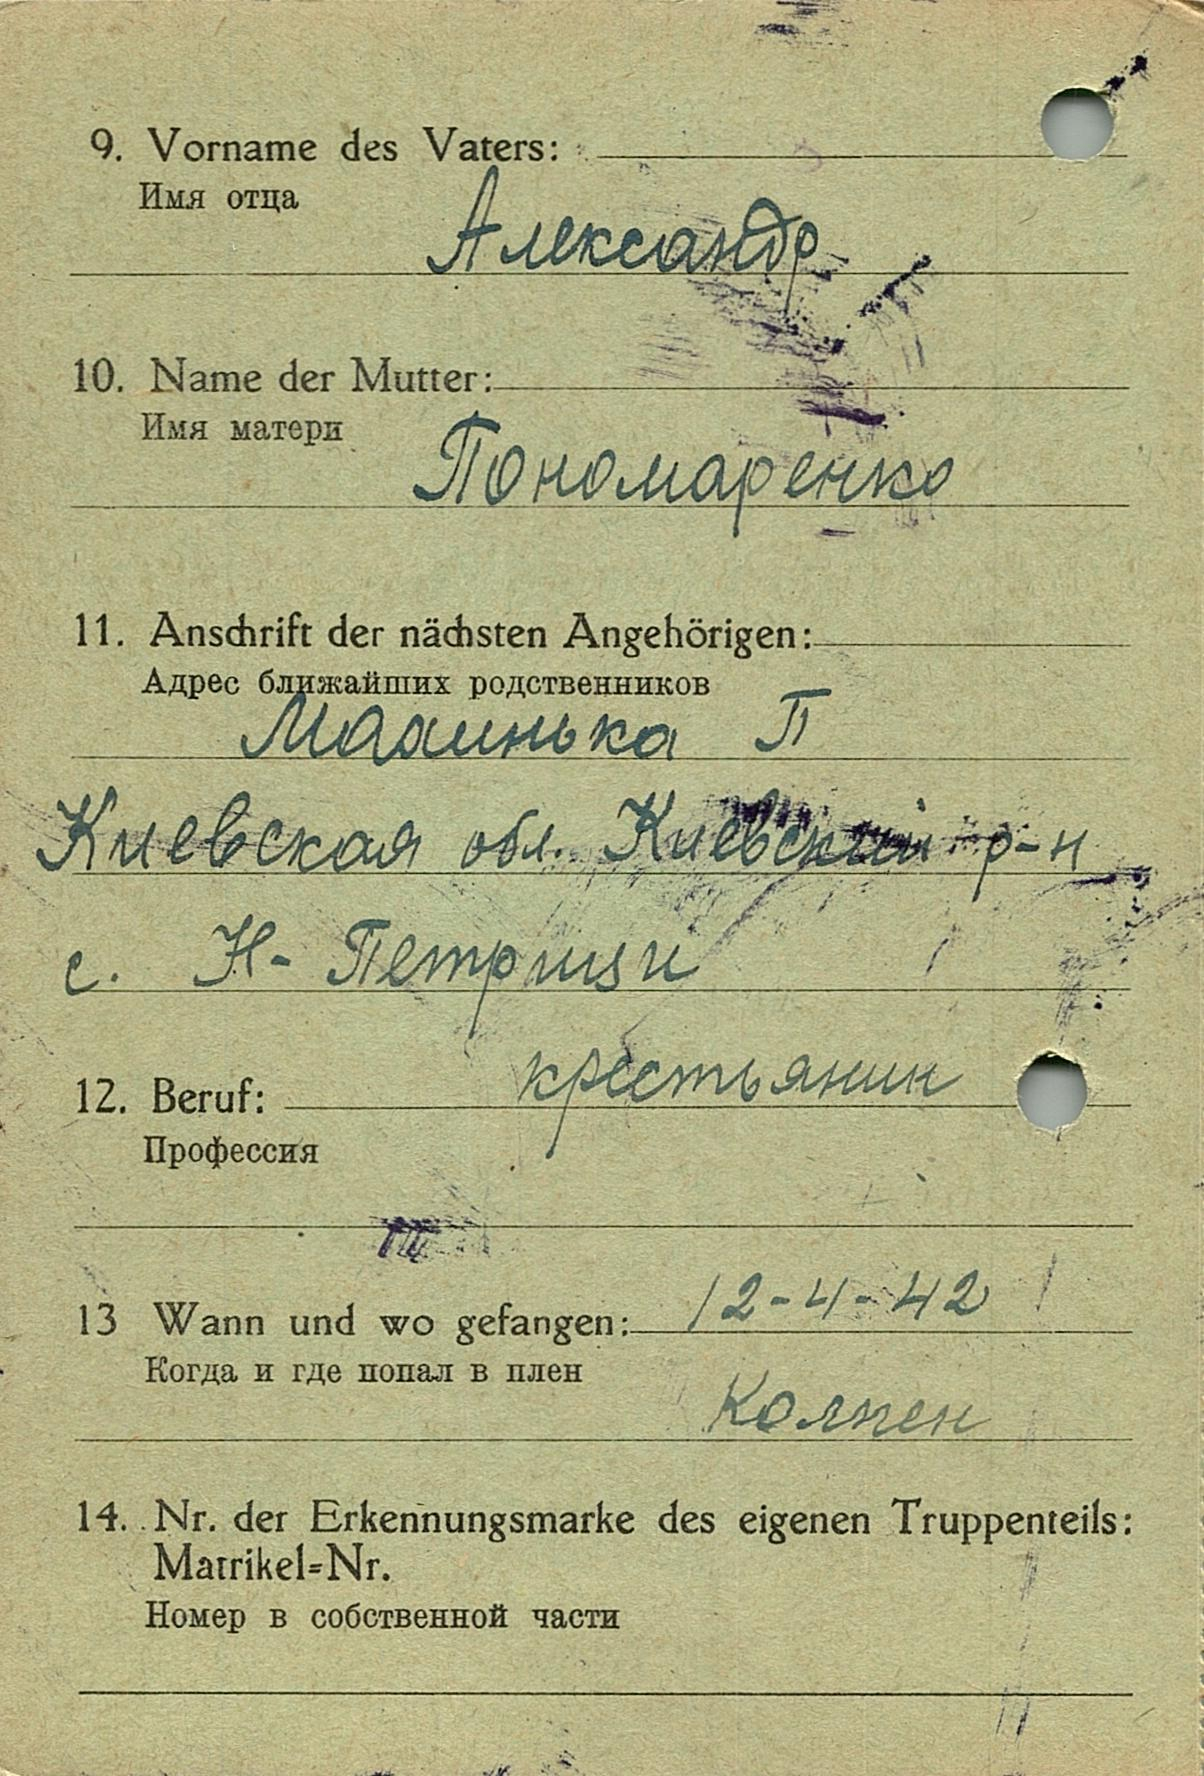 9. Vorname des Vaters:
Имя отца
Александр
10. Name der Mutter:
Имя матери
Пономаренко
11. Anschrift der nächsten Angehörigen:
Адрес ближайших родственников
П
Киевская обл. Киевский р-н
с. Н- Петрищи
12. Beruf: крестьянин
Профессия
13 Wann und wo gefangen: 12-4-42
Когда и где попал в плен
14. Nr. der Erkennungsmarke des eigenen Truppenteils:
Matrikel-Nr.
Номер в собственной части